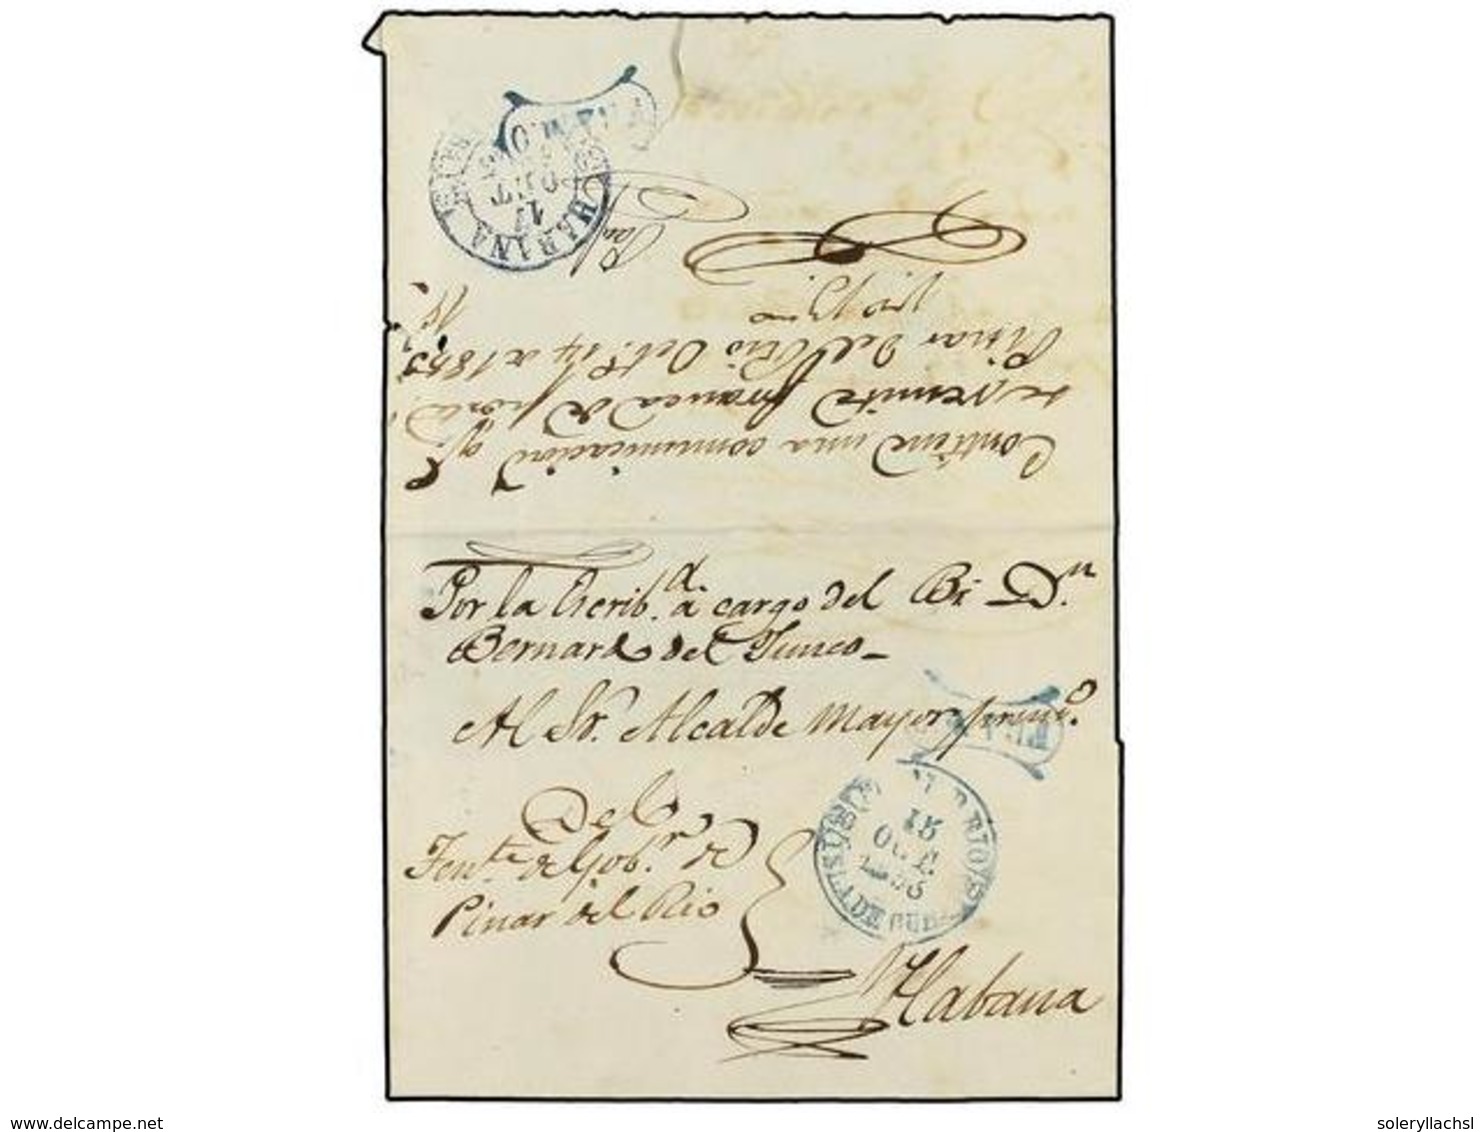 Contiene una comunicacion qe.
se remite franca de porte.
Pinar del Rio Octe. 14 de 1855
Por la Escrib.a a cargo del Br. Dn.
Bernardo del Junco_
Al Sr. Alcalde Mayor primo.
Del
Tente. de Gobr. de
Pinar del Rio
Habana
15
OCT
www.delcampe.net
soleryllachsl